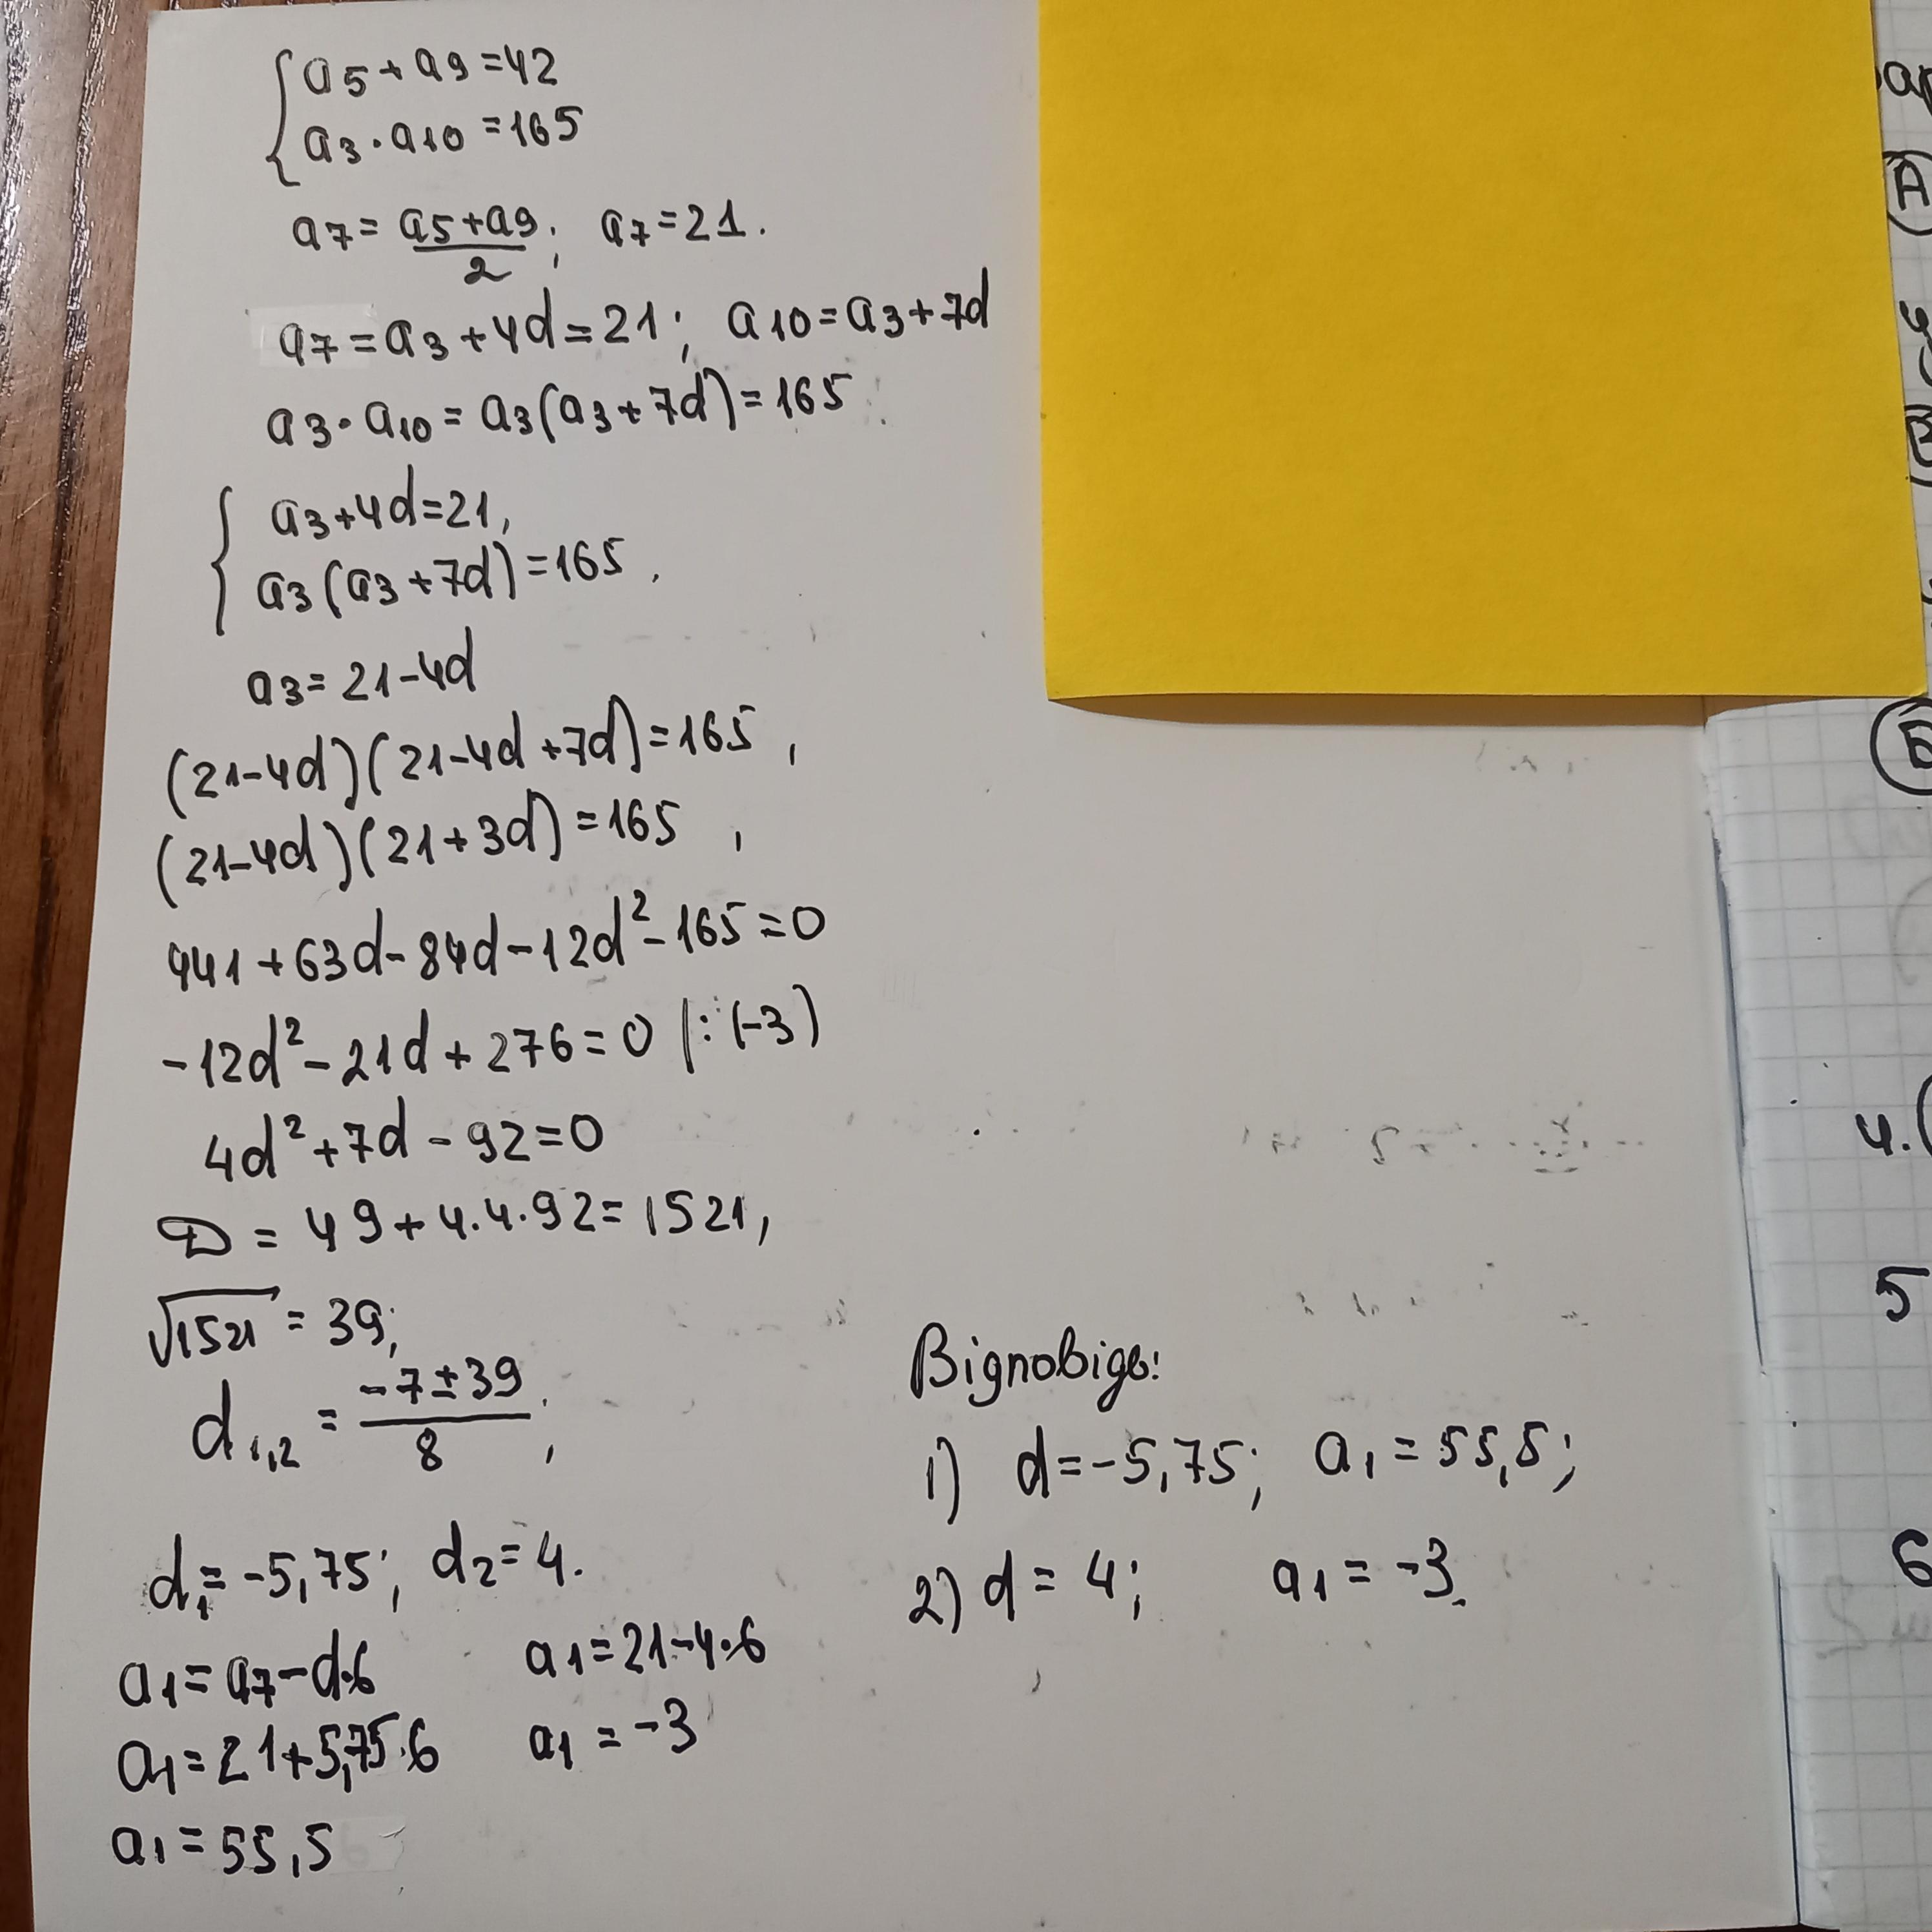 { a5 + a9 = 42
a3 · a10 = 165
a7 = (a5 + a9)/2; a7 = 21.
a7 = a3 + 4d = 21; a10 = a3 + 7d
a3 · a10 = a3(a3 + 7d) = 165
{ a3 + 4d = 21,
a3(a3 + 7d) = 165.
a3 = 21 - 4d
(21 - 4d)(21 - 4d + 7d) = 165,
(21 - 4d)(21 + 3d) = 165,
441 + 63d - 84d - 12d² - 165 = 0
-12d² - 21d + 276 = 0 |: (-3)
4d² + 7d - 92 = 0
D = 49 + 4.4.92 = 1521,
√1521 = 39;
d1,2 = (-7 ± 39)/8;
d1 = -5,75; d2 = 4.
a1 = a7 - d·6
a1 = 21 + 5,75·6
a1 = 55,5
a1 = 21 - 4·6
a1 = -3
Відповідь:
1) d = -5,75; a1 = 55,5;
2) d = 4; a1 = -3.
A
4.
5
6